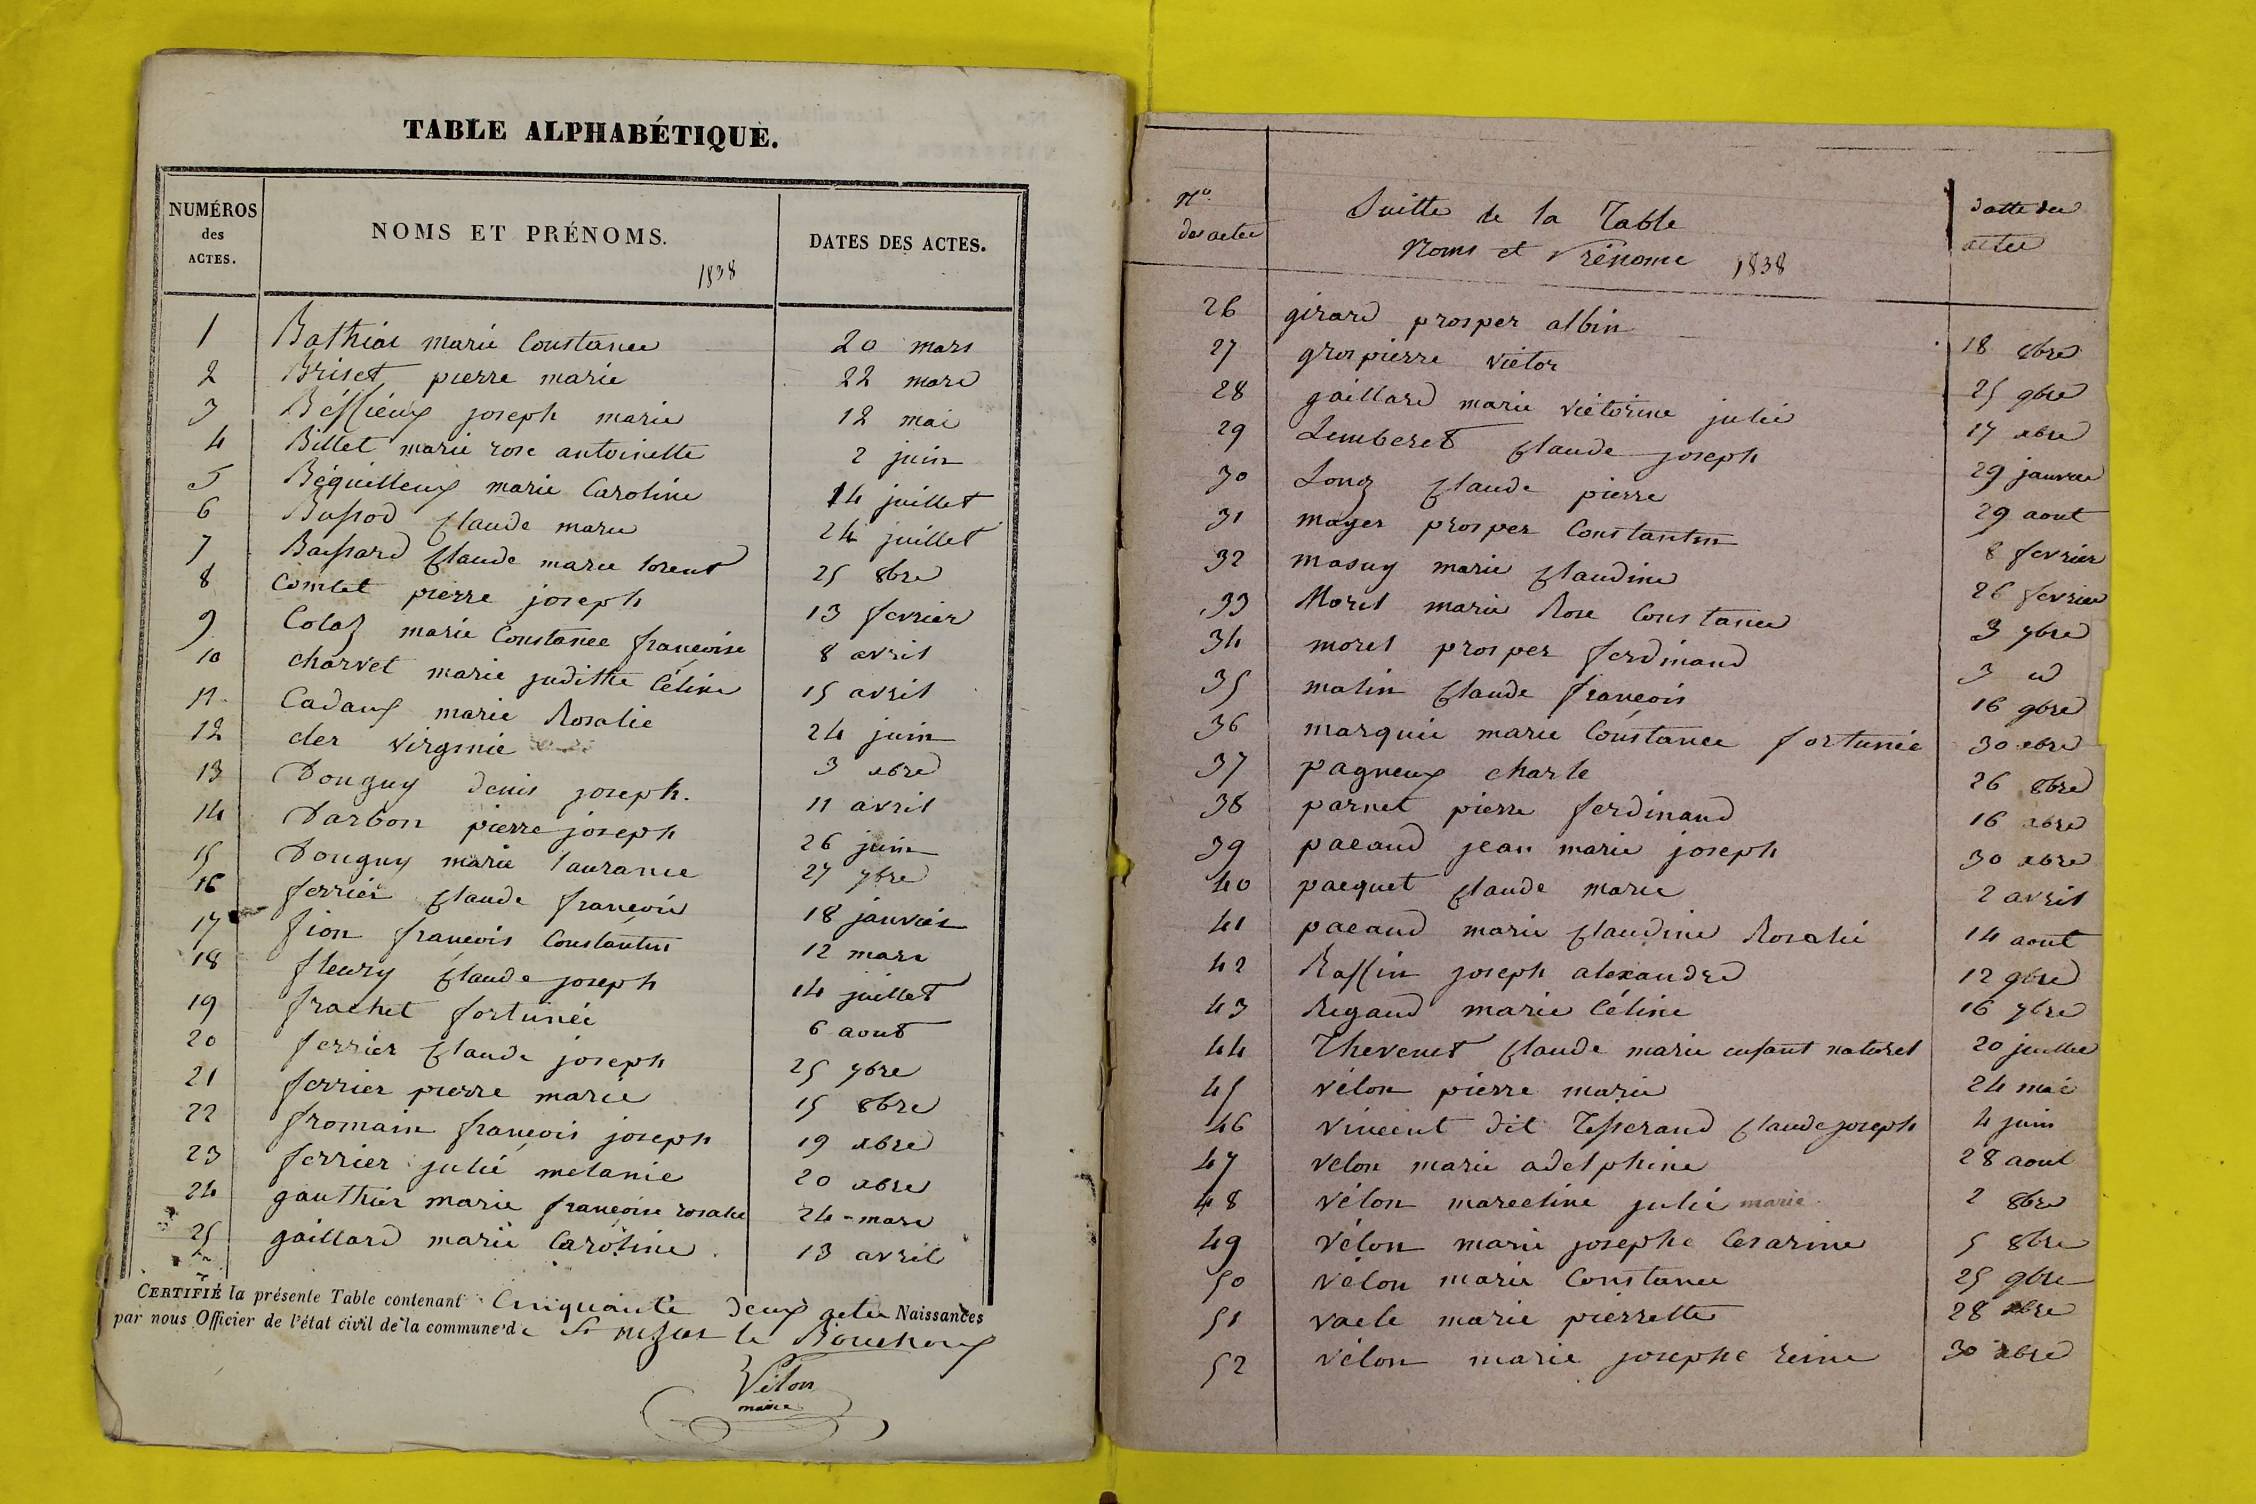 TABLE ALPHABÉTIQUE.
NUMÉROS des ACTES. NOMS ET PRÉNOMS. 1838 DATES DES ACTES.
1 Bathias marie Constance 20 mars
2 Briset pierre marie 22 mars
3 Béssieux joseph marie 12 mai
4 Billet marie rose antoinette 2 juin
5 Béquilleux marie Caroline 14 juillet
6 Bussod Claude marie 24 juillet
7 Bassard Claude marie lorent 25 8bre
8 Combet pierre joseph 13 fevrier
9 Colaz marie Constance francoise 8 avril
10 charvet marie juditthe Céline 15 avril
11 Cadaux marie Rosalie 24 juin
12 cler virginie 3 xbre
13 Douguy denis joseph. 11 avril
14 Darbon pierre joseph 26 juin
15 Douguy marie laurance 27 7bre
16 ferrier Claude francois 18 janvier
17 fion francois Constantin 12 mars
18 fleury Claude joseph 14 juillet
19 frachet fortunée 6 aout
20 ferrier Claude joseph 25 7bre
21 ferrier pierre marie 15 8bre
22 fromain francois joseph 19 xbre
23 ferrier julie melanie 20 xbre
24 gauthier marie francoise rosalie 24 mars
25 gaillard marie Caroline 13 avril
CERTIFIÉ la présente Table contenant Cinquante deux actes Naissances
par nous Officier de l'état civil de la commune de St Bouchoux
Vélon
maire
No. des actes Suitte de la Table datte des
Noms et Prénoms 1838 actes
26 girard prosper albin 18 8bre
27 grospierre victor 25 9bre
28 gaillard marie victorine julie 17 xbre
29 Lemberet Claude joseph 29 janvier
30 Lonz Claude pierre 29 aout
31 mayer prosper Constantin 8 fevrier
32 masuy marie Claudine 26 fevrier
33 Morel marie Rose Constance 3 7bre
34 morel prosper ferdinand 3 id
35 matin Claude francois 16 9bre
36 marquis marie Constance fortunée 30 xbre
37 pagneux charle 26 8bre
38 parnet pierre ferdinand 16 xbre
39 pacaud jean marie joseph 30 xbre
40 pacquet Claude marie 2 avril
41 pacaud marie Claudine Rosalie 14 aout
42 Rassin joseph alexandre 12 9bre
43 Rigaud marie Céline 16 7bre
44 Thevenet Claude marie enfant naturel 20 juillet
45 vélon pierre marie 24 mai
46 vincent dit Tisserand Claude joseph 4 juin
47 vélon marie adelphine 28 aout
48 vélon marceline julie marie 2 8bre
49 Vélon marie josephe Cesarine 5 8bre
50 vélon marie Constance 25 9bre
51 vacle marie pierrette 28 xbre
52 vélon marie josephe reine 30 xbre